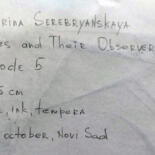 rina Serebryanskaya
es and Their Observer
ode 5
5 cm
, ink, tempera
October, Novi Sad